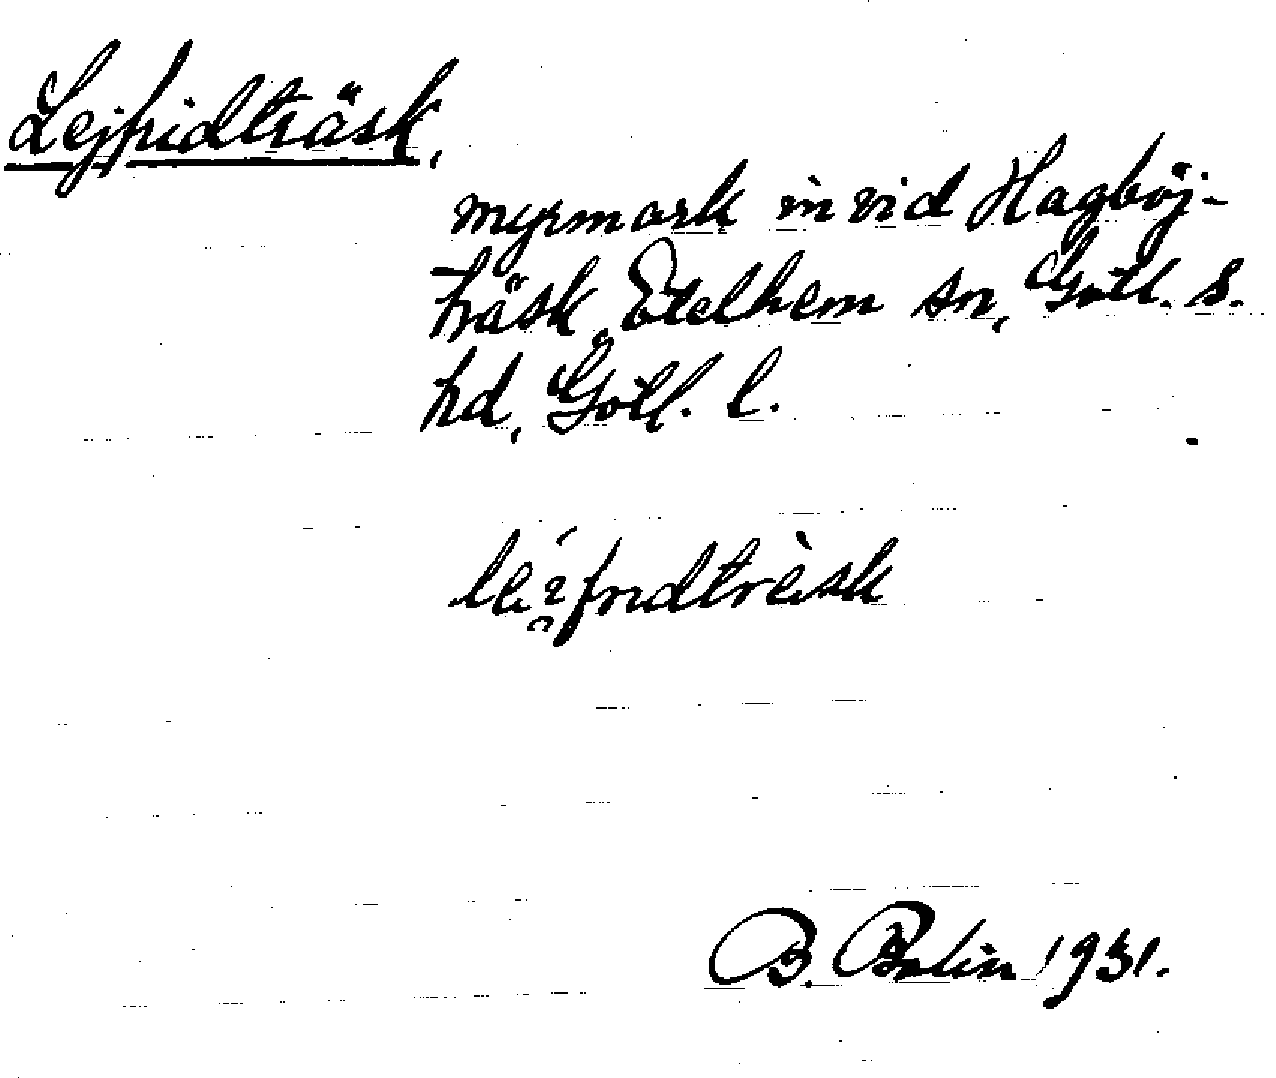 Lejfridträsk,
myrmark invid Hagböj-
träsk, Etelhem sn, Gotl. s.
hd, Gotl. l.
B. Bolin 1931.